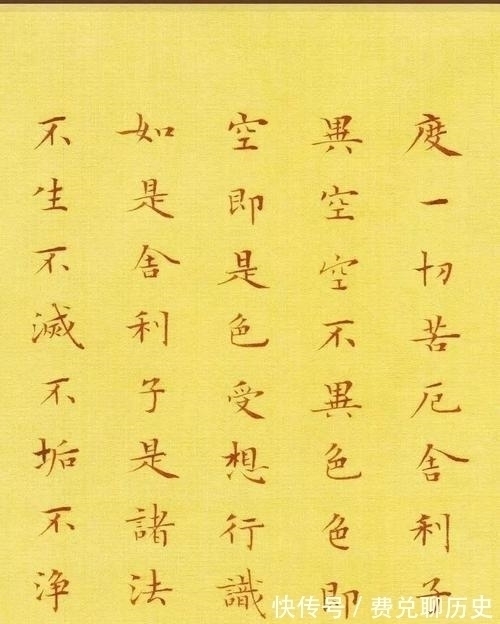 度一切苦厄舍利子
異空空不異色色即
空即是色受想行識
如是舍利子是諸法
不生不滅不垢不浄
快传号/费兑聊历史